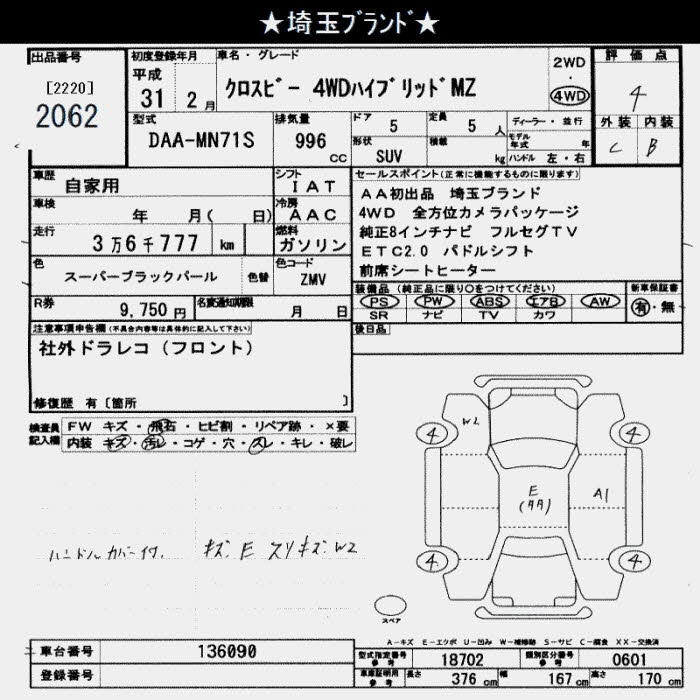 ★埼玉ブランド★
出品番号
[2220]
2062
初度登録年月
平成
31 2月
車名・グレード
クロスビー 4WDハイブリッドMZ
2WD
・
4WD
評価点
4
外装 内装
C B
型式
DAA-MN71S
排気量
996
CC
ドア 5
形状
SUV
定員 5 人
積載 kg
ディーラー・並行
モデル年式 年
ハンドル 左・右
車歴
自家用
シフト
IAT
車検
年 月( 日)
冷房
AAC
走行
3万6千777 km
燃料
ガソリン
色
スーパーブラックパール
色替
色コード
ZMV
R券
9,750円
名変通知期限
月 日
セールスポイント(正常に機能するものに限ります)
AA初出品 埼玉ブランド
4WD 全方位カメラパッケージ
純正8インチナビ フルセグTV
ETC2.0 パドルシフト
前席シートヒーター
装備品(純正品に限り○をつけてください)
PS PW ABS エアB AW
SR ナビ TV カワ
新車保証書
有・無
後日品
注意事項申告欄(不具合内容等は具体的に記入して下さい)
社外ドラレコ(フロント)
修復歴 有[箇所 ]
検査員記入欄
FW キズ・飛石・ヒビ割・リペア跡・×要
内装 キズ・汚レ・コゲ・穴・スレ・キレ・破レ
ハンドルカバー付、 キズ E スリキズ W2
W2
4
4
E
(タタ)
A1
4
4
スペア
A-キズ E-エクボ U-凹み W-補修跡 S-サビ C-腐食 XX-交換済
車台番号 136090
登録番号
型式指定番号
参考
18702
類別区分番号
参考
0601
車庫証明用
参考
長さ 376 cm
幅 167 cm
高さ 170 cm